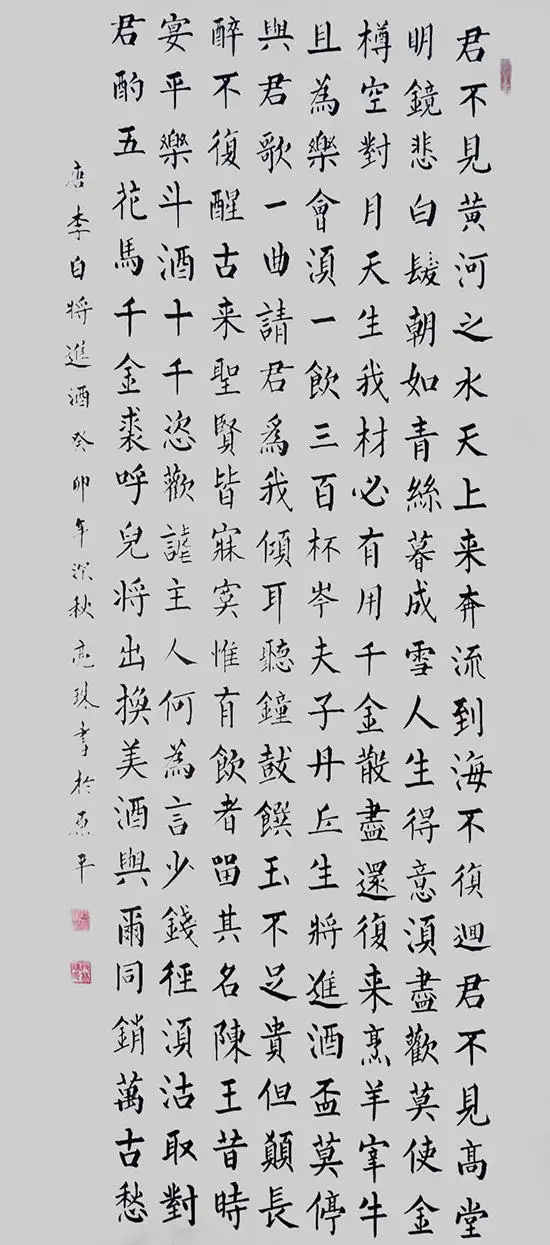 君不見黄河之水天上来奔流到海不復迴君不見高堂
明鏡悲白髮朝如青絲暮成雪人生得意須盡歡莫使金
樽空對月天生我材必有用千金散盡還復来烹羊宰牛
且為樂會須一飲三百杯岑夫子丹丘生將進酒盃莫停
與君歌一曲請君爲我傾耳聽鐘鼓饌玉不足貴但願長
醉不復醒古来聖賢皆寂寞惟有飲者留其名陳王昔時
宴平樂斗酒十千恣歡謔主人何為言少錢徑須沽取對
君酌五花馬千金裘呼兒将出換美酒與爾同銷萬古愁
唐李白将進酒癸卯年深秋亮珠書於原平